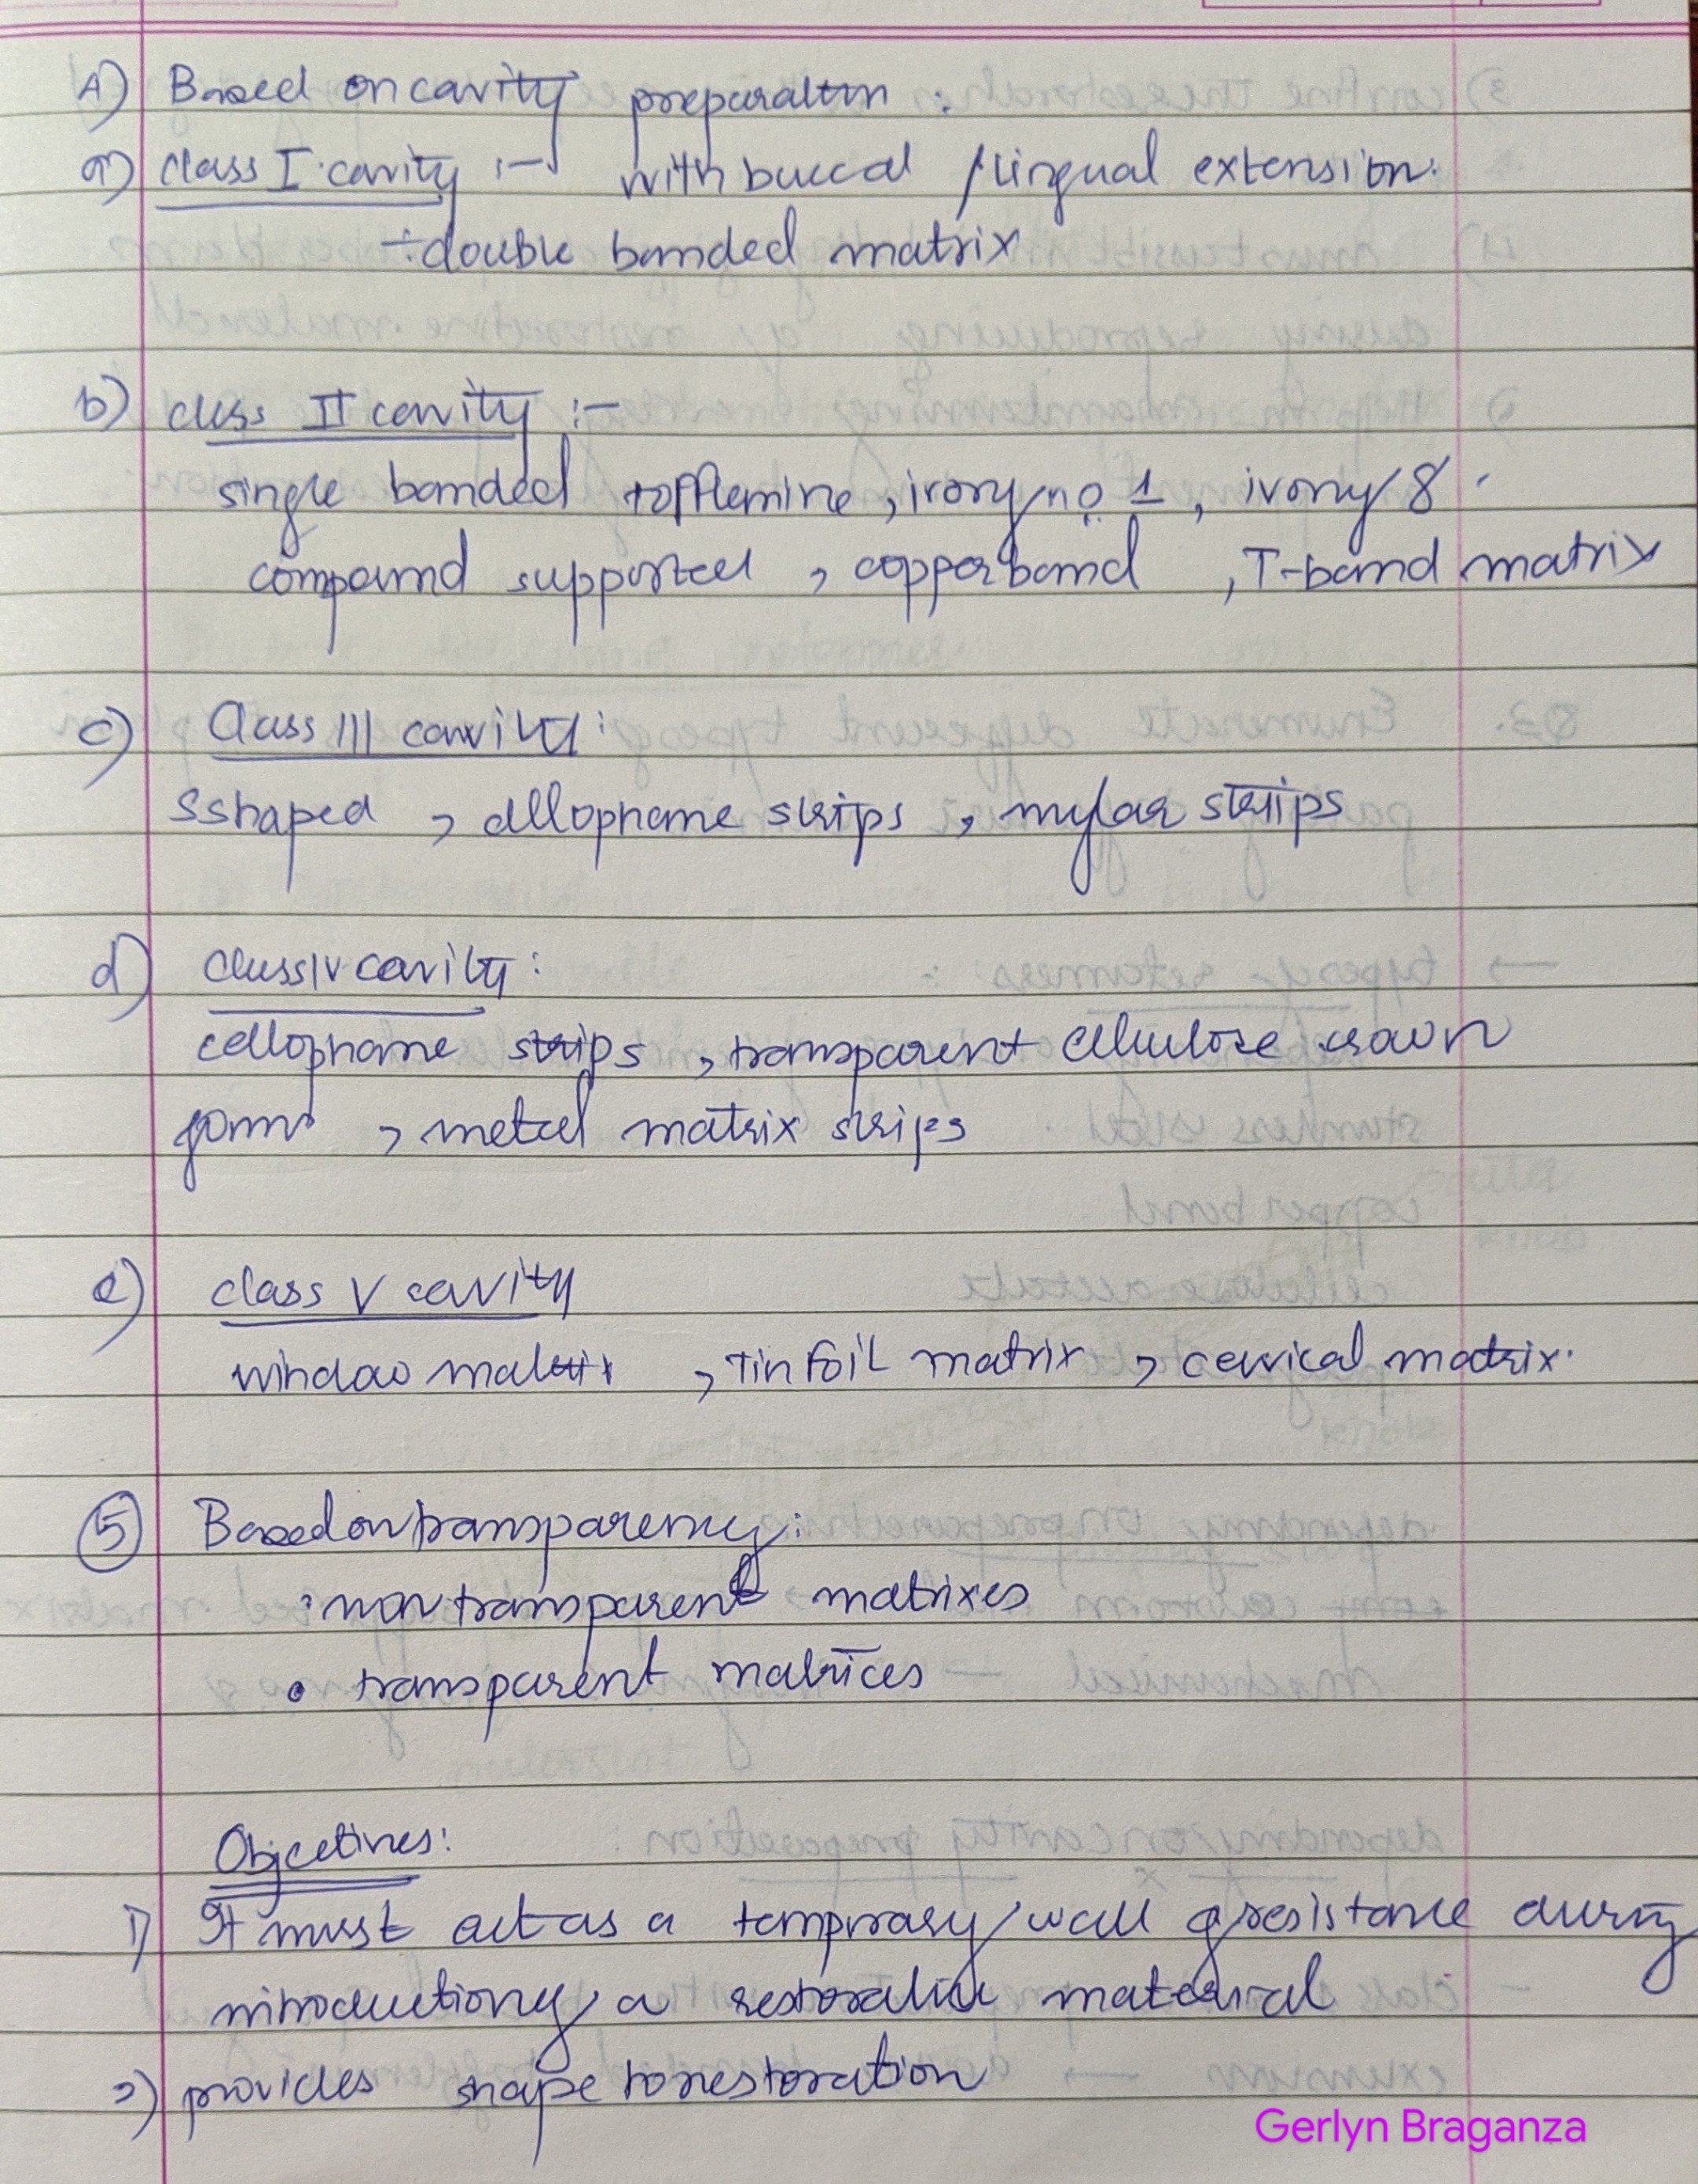 A) Based on cavity preparation :
a) class I cavity :- with buccal / lingual extension.
÷ double banded matrix
b) class II cavity :-
single banded tofflemire , ivory no 1 , ivory 8 .
compound supported , copper band , T-band matrix
c) Class III cavity :
S shaped , cellophane strips , mylar strips
d) class IV cavity :
cellophane strips , transparent cellulose crown
forms , metal matrix strips
e) class V cavity
window matrix , Tin foil matrix , cervical matrix.
5 Based on transparency :
: non transparent matrixes
• transparent matrices
Objectives :
1) It must act as a temporary wall of resistance during
introduction of a restorative material
2) provides shape to restoration
Gerlyn Braganza